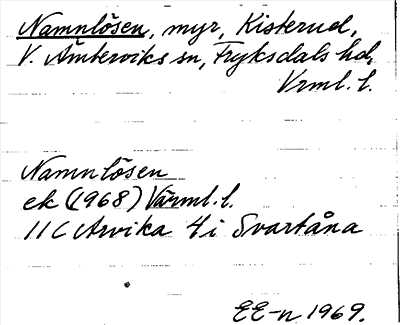 Namnlösen, myr, Kisterud,
V. Ämterviks sn, Fryksdals hd,
Vrml. l.
Namnlösen
ek (1968) Värml. l.
11 C Arvika 4 i Svartåna
EE-n 1969.